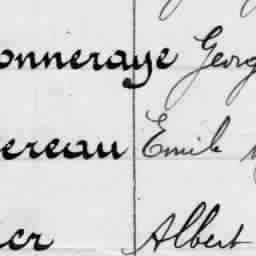 onneraye Georg
ereau Emile
ier Albert